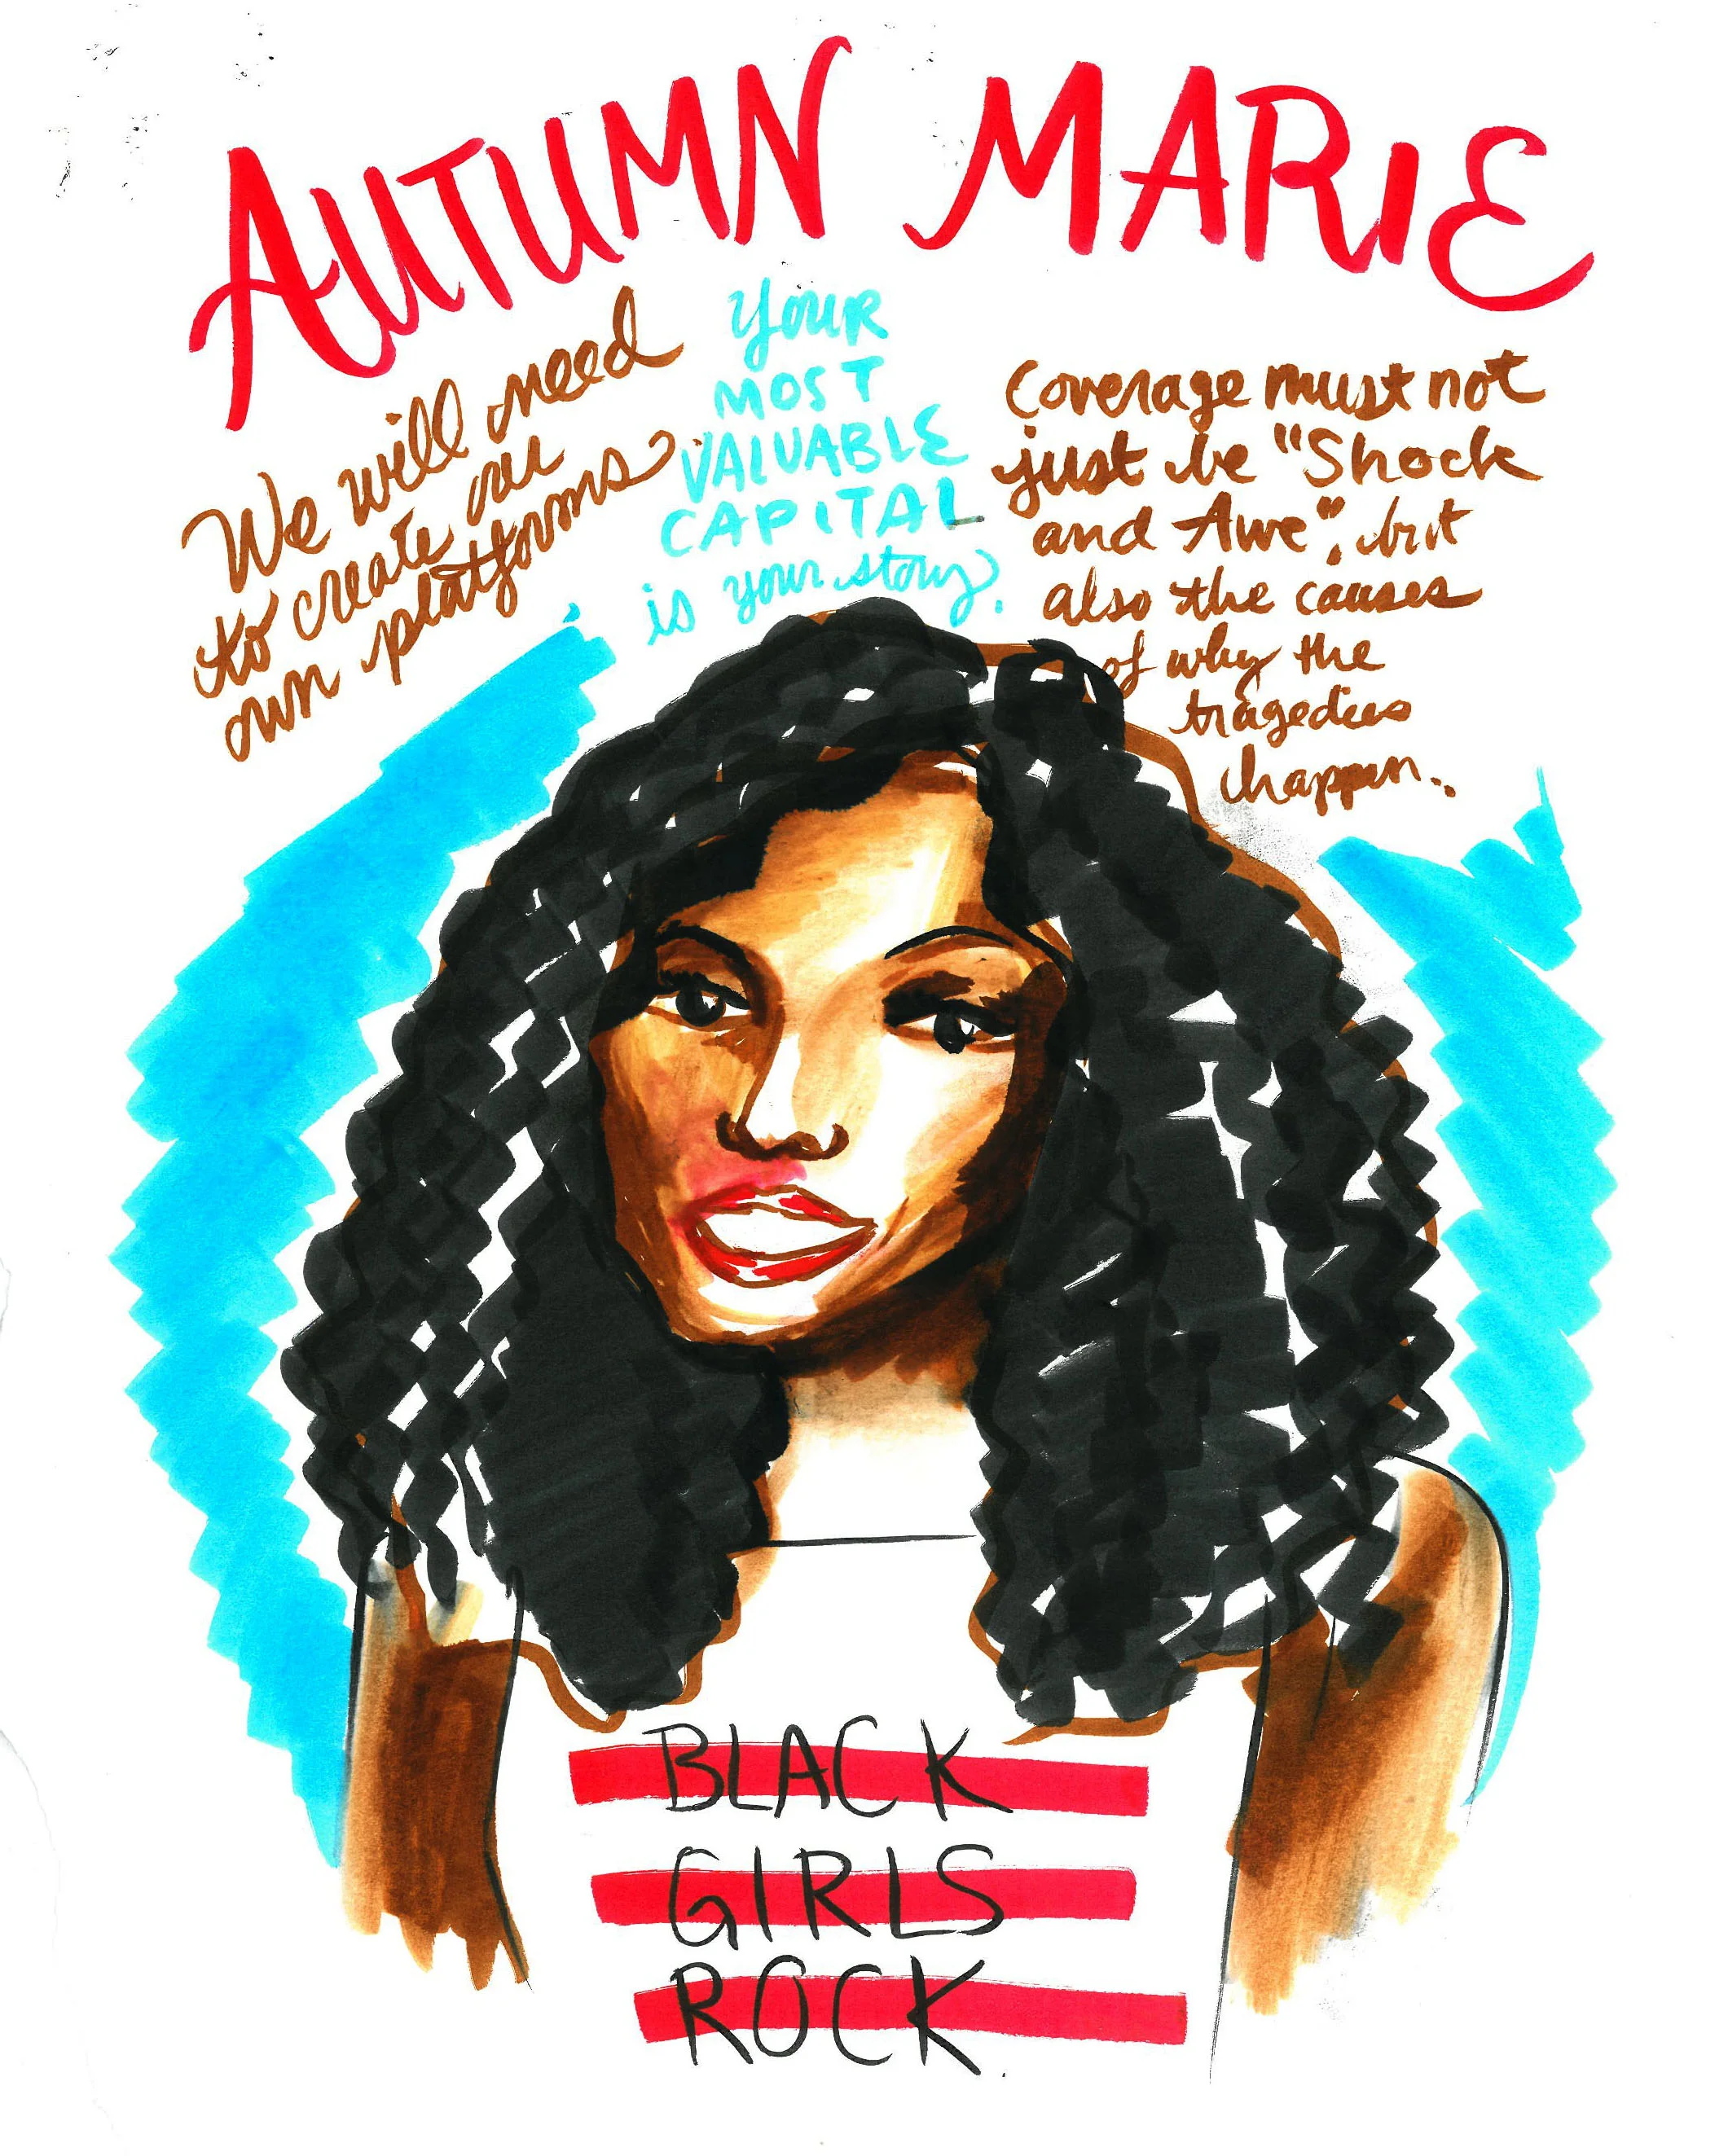 AUTUMN MARIE
We will need
to create our
own platforms
YOUR
MOST
VALUABLE
CAPITAL
is your story.
Coverage must not
just be "Shock
and Awe", but
also the causes
of why the
tragedies
happen.
BLACK
GIRLS
ROCK